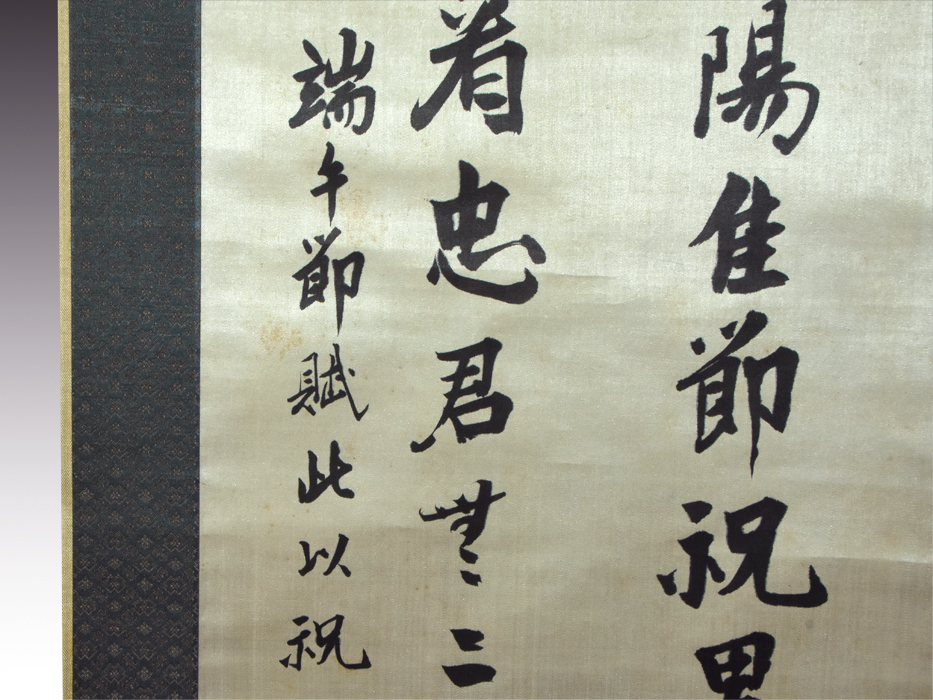 陽佳節祝男
着忠君無二
端午節賦此以祝